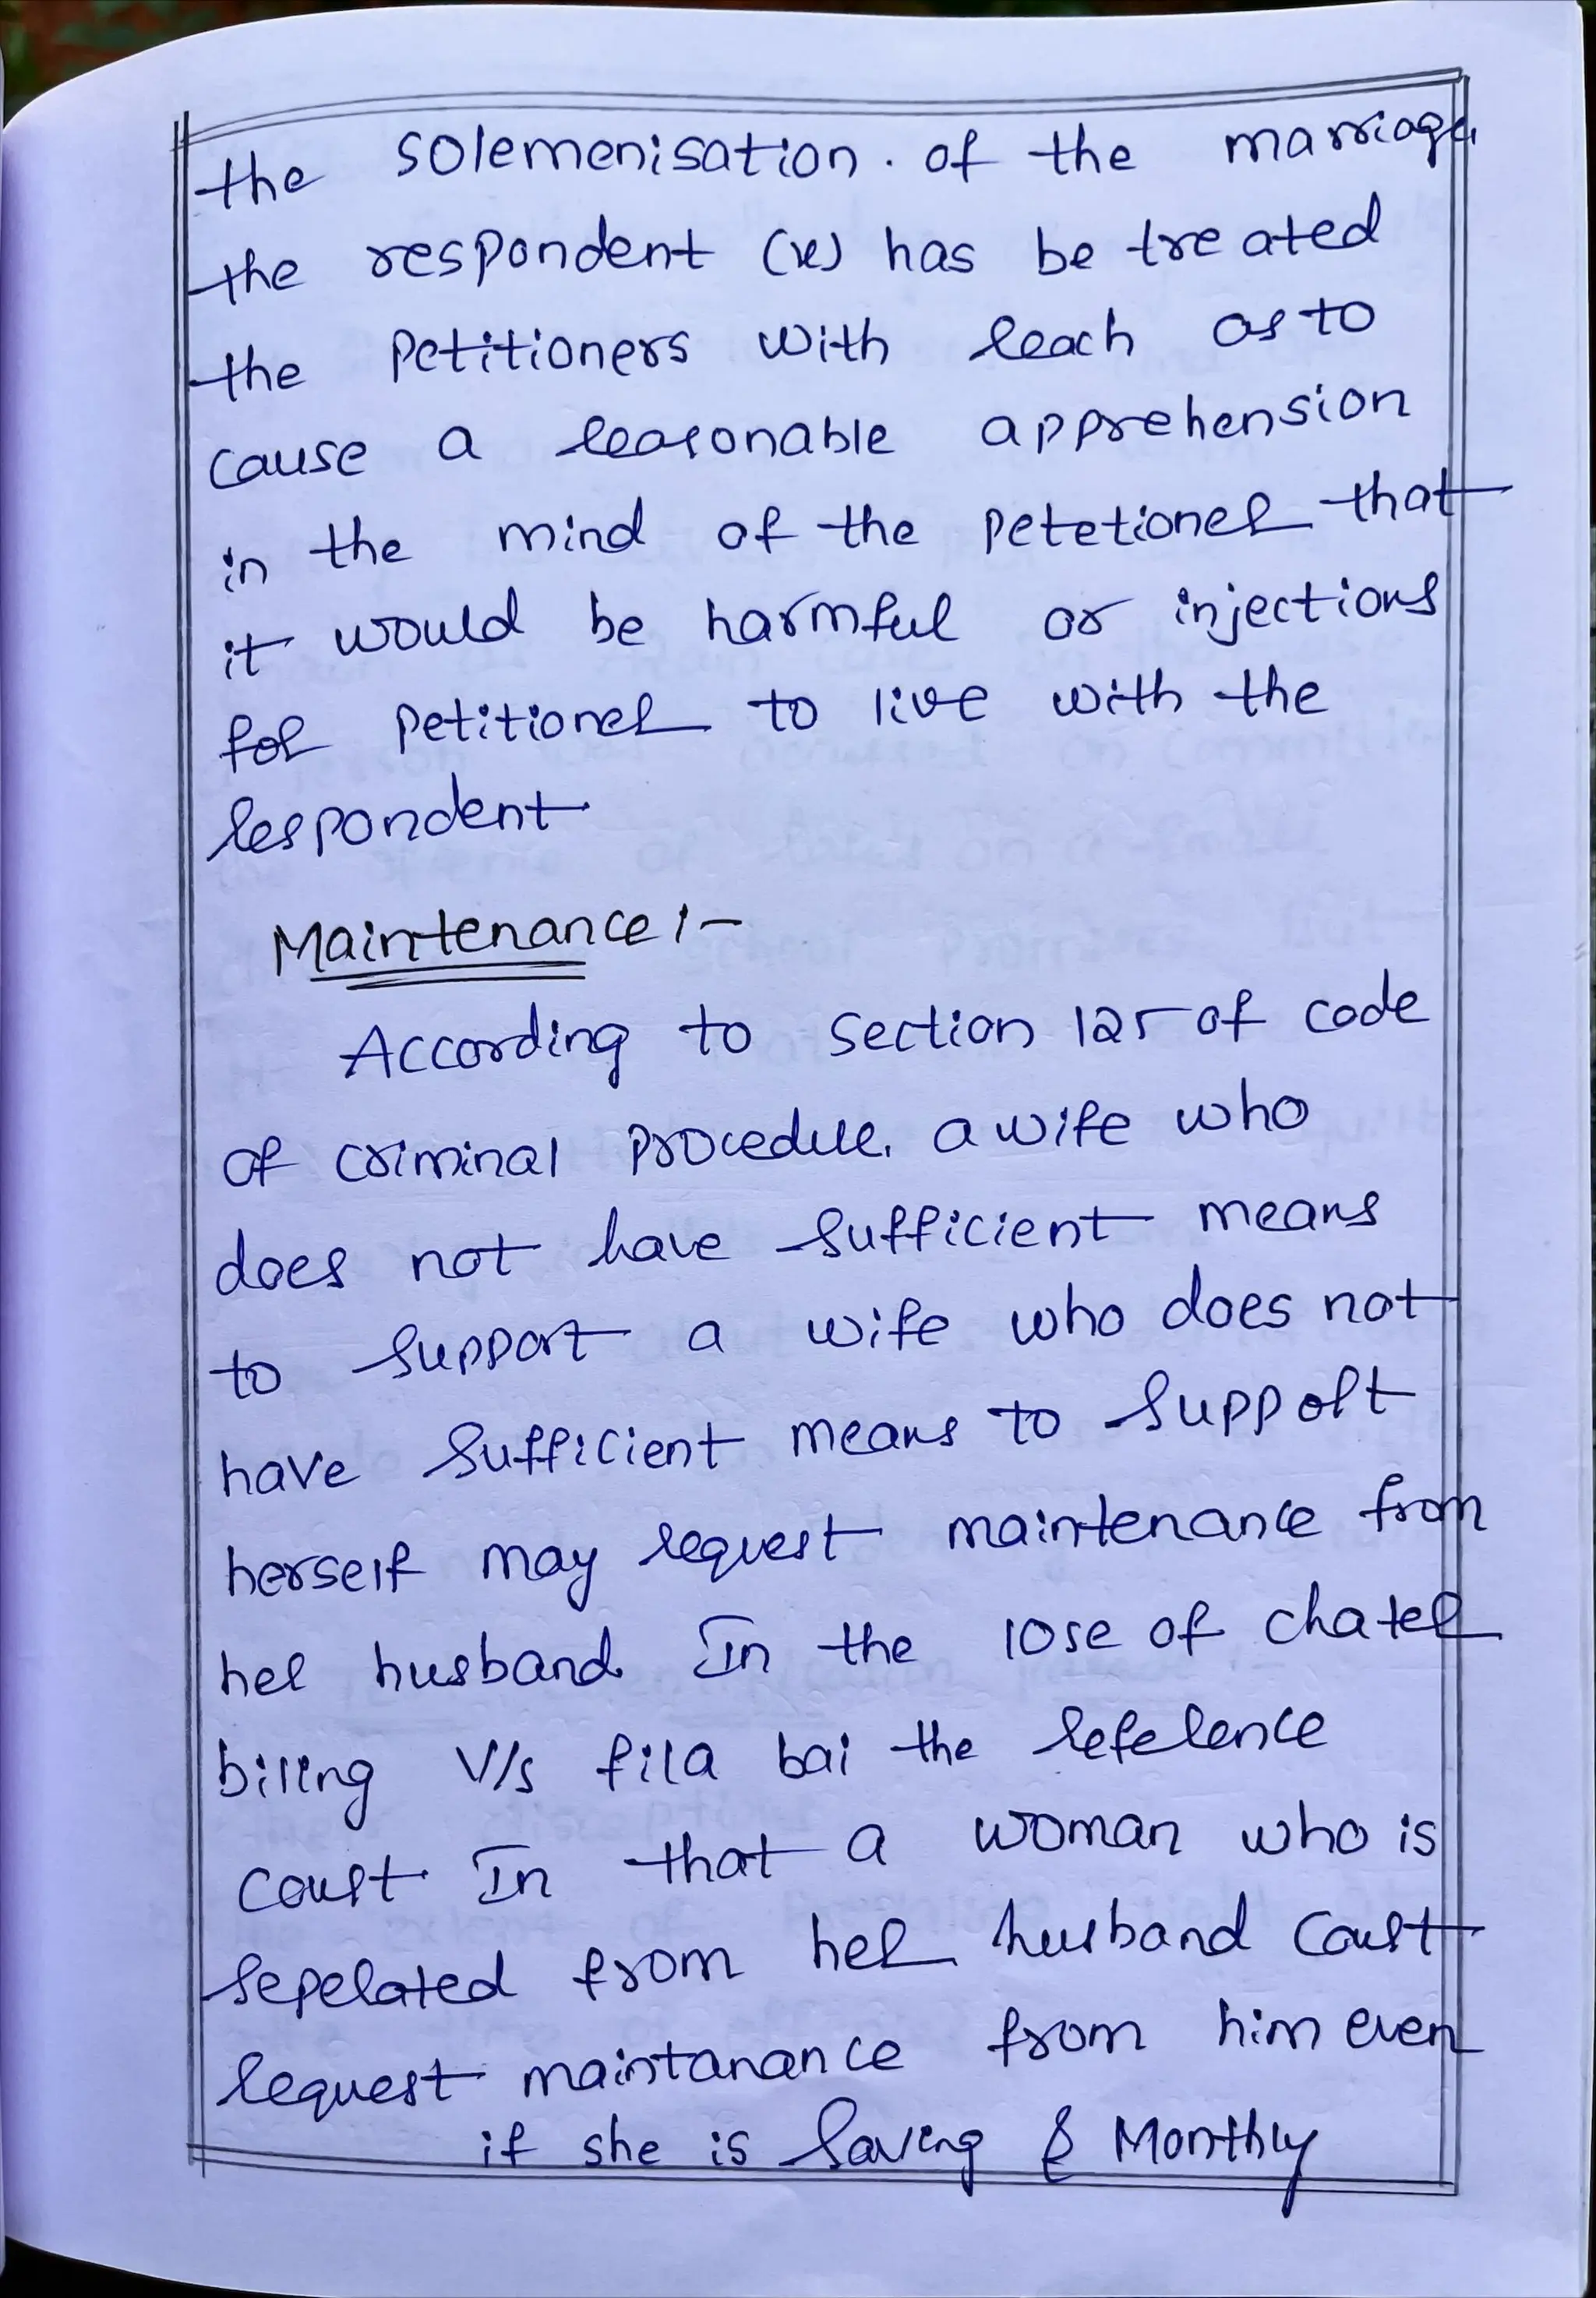 the solemenisation. of the marriage
the respondent (x) has be treated
the Petitioners with leach as to
cause a reasonable apprehension
in the mind of the Petetioner that
it would be harmful or injections
for Petitioner to live with the
respondent
Maintenance :-
According to section 125 of code
of criminal procedure. a wife who
does not have sufficient means
to support a wife who does not
have sufficient means to support
herself may request maintenance from
her husband In the lose of chater
biling V/s fila bai the reference
court In that a woman who is
seperated from her husband court
request maintanance from him even
if she is Saving & Monthly